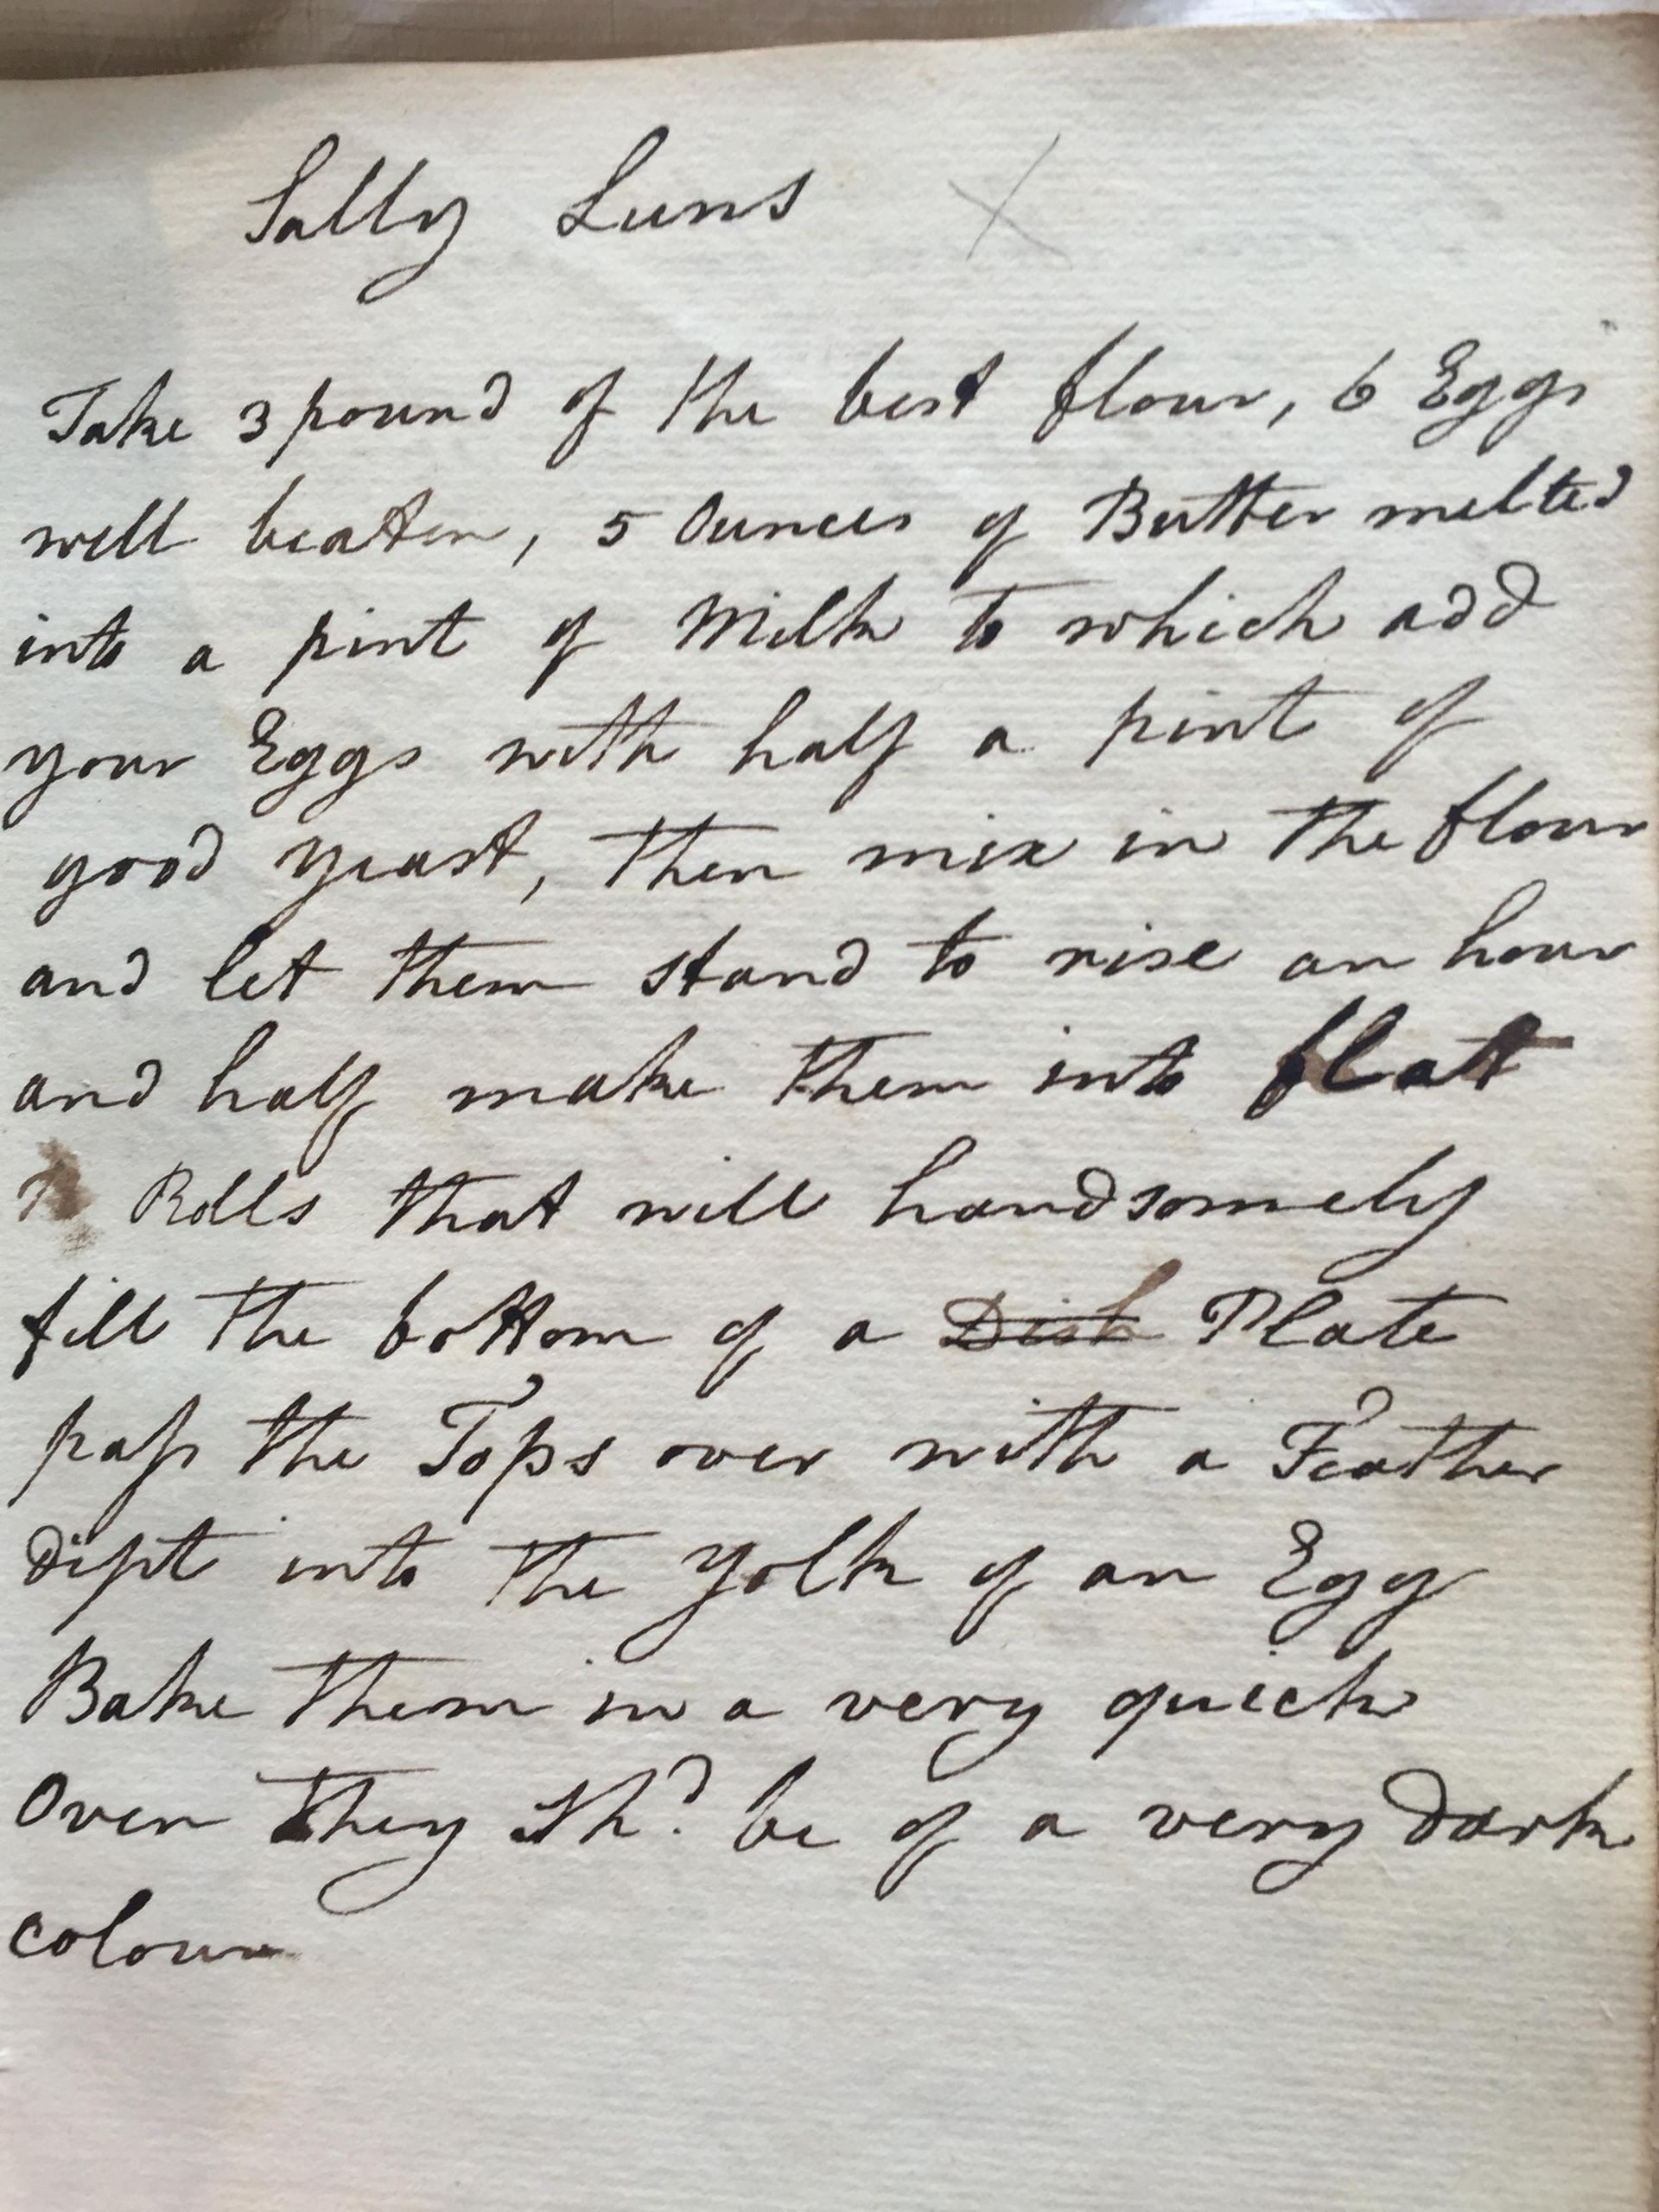 Sally Luns X
Take 3 pound of the best flour, 6 Eggs
well beaten, 5 Ounces of Butter melted
into a pint of Milk to which add
your Eggs with half a pint of
good yeast, then mix in the flour
and let them stand to rise an hour
and half make them into flatt
Rolls that will handsomely
fill the bottom of a Dish Plate
paſs the Tops over with a Feather
dipt into the Yolk of an Egg
Bake them in a very quick
Oven They Shd. be of a very dark
colour